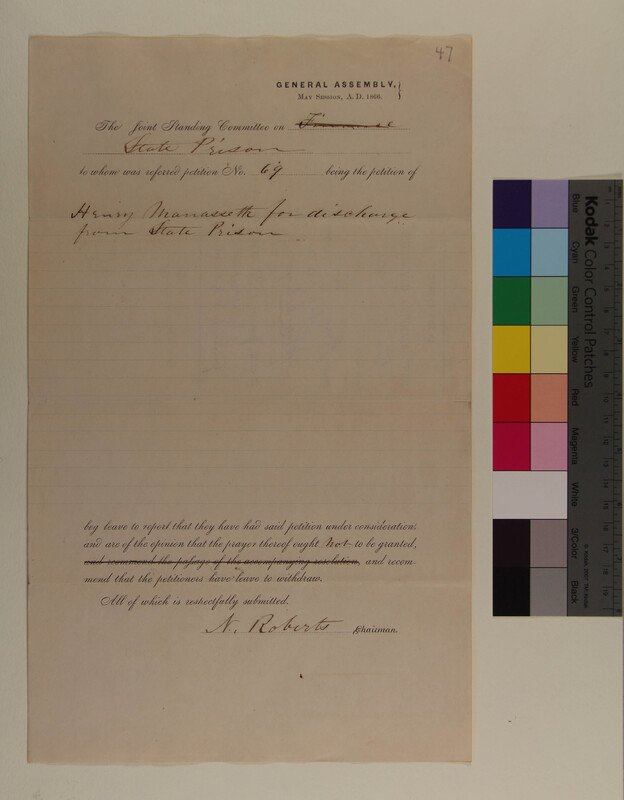 47
GENERAL ASSEMBLY,
May Session, A.D. 1866.
The Joint Standing Committee on Finance
State Prison
to whom was referred petition No. 69 being the petition of
Henry Manasseth for discharge
from State Prison
beg leave to report that they have had said petition under consideration,
and are of the opinion that the prayer thereof ought not to be granted,
and recommend the passage of the accompanying resolution, and recom-
mend that the petitioners have leave to withdraw.
All of which is respectfully submitted.
N. Roberts Chairman.
Kodak Color Control Patches
Blue
Cyan
Green
Yellow
Red
Magenta
White
3/Color
Black